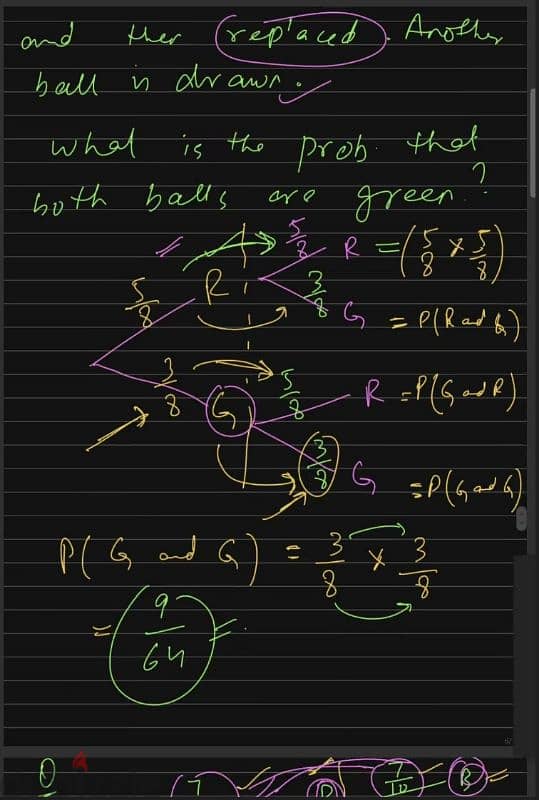 and then replaced. Another
ball is drawn.
What is the prob. that
both balls are green?
5/8 R = (5/8 × 5/8)
5/8 R
3/8 G = P(R and G)
3/8 G
5/8 R = P(G and R)
3/8 G = P(G and G)
P(G and G) = 3/8 × 3/8
= 9/64
Q
7 7/10 B =